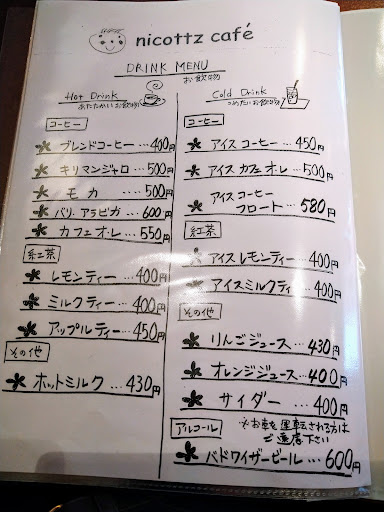 nicottz café
DRINK MENU
お飲物
Hot Drink
あたたかいお飲物
コーヒー
ブレンドコーヒー…400円
キリマンジャロ…500円
モカ…500円
バリ、アラビカ…600円
カフェオ・レ…550円
紅茶
レモンティー…400円
ミルクティー…400円
アップルティー…450円
その他
ホットミルク…430円
Cold Drink
つめたいお飲物
コーヒー
アイスコーヒー…450円
アイスカフェオ・レ…500円
アイスコーヒー
フロート…580円
紅茶
アイスレモンティー…400円
アイスミルクティ…400円
その他
りんごジュース…430円
オレンジジュース…400円
サイダー…400円
アルコール
※お車を運転される方は
ご遠慮下さい
バドワイザービール…600円